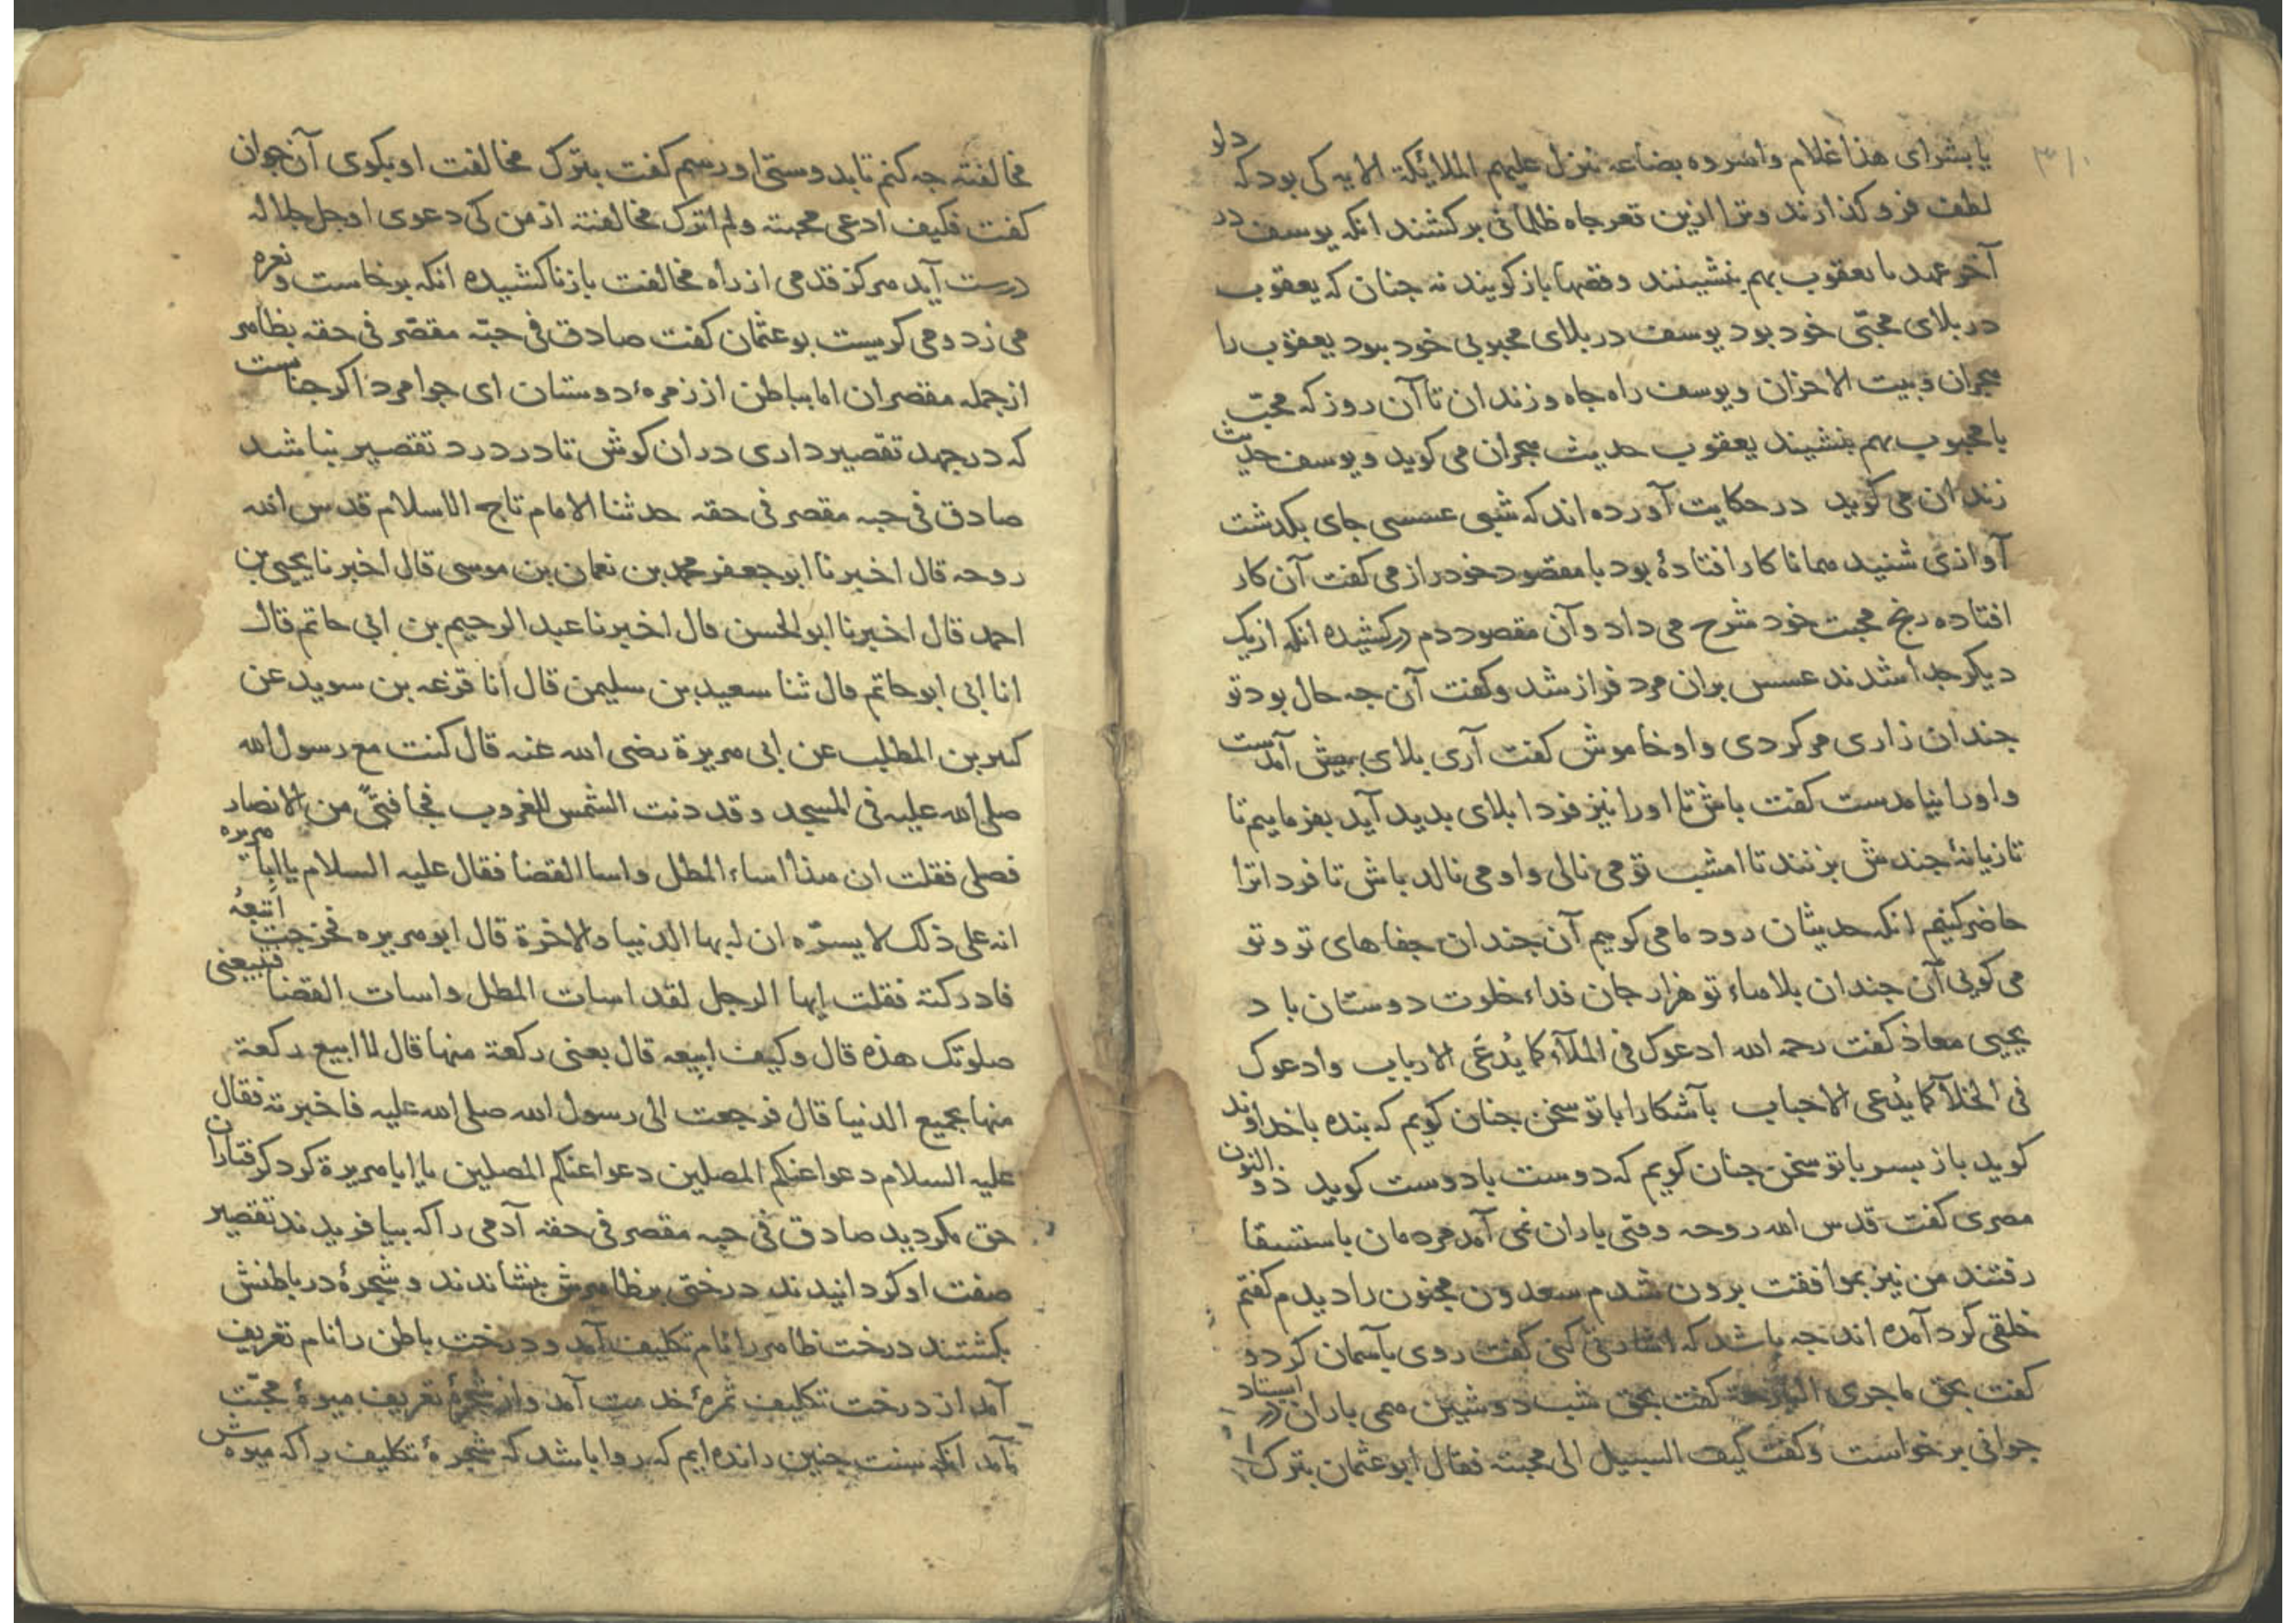 ۳۱۰
یا بشرای هذا غلام واسروه بضاعه تنزل علیهم الملائکة الایه کی بود که دلو
لطف فرو کذارند وترا ازین تعر جاه ظلمانی برکشند انکه یوسف در
آخر عهد با یعقوب بهم بنشینند وقصها باز کویند نه جنان که یعقوب
در بلای محبّی خود بود یوسف در بلای محبوبی خود بود یعقوب را
هجران وبیت الاحزان ویوسف راه جاه وزندان تا آن روز که محبّ
با محبوب بهم بنشیند یعقوب حدیث هجران می کوید ویوسف حدیث
زندان می کوید در حکایت آورده اند که شبی عسسی جای بکدشت
آوازی شنید همانا کار افتادهٔ بود با مقصود خود راز می کفت آن کار
افتاده رنج محبت خود شرح می داد وآن مقصود دم درکشیده انکه از یک
دیکر جدا شدند عسس بران مرد فراز شد وکفت آن جه حال بود تو
جندان زاری مرکردی واو خاموش کفت آری بلای بیش آمدست
واورا نیامدست کفت باش تا اورا نیز فردا بلای بدید آید بفرماییم تا
تازیانهٔ جندش بزنند تا امشب تو می نالی واو می نالد باش تا فردا ترا
حاضر کنیم انکه حدیثان رود ما می کوییم آن جندان جفاهای تو وتو
می کویی آن جندان بلاهاء تو هزار جان فداء خلوت دوستان باد
یحیی معاذ کفت رحمه الله ادعوک فی الملآء کما یُدعَی الارباب وادعوک
فی الخلآ کما یُدعی الاحباب بآشکارا با تو سخن جنان کویم که بنده با خداوند
کوید باز بسر با تو سخن جنان کویم که دوست با دوست کوید ذو النون
مصری کفت قدس الله روحه وقتی باران نمی آمد مردمان باستسقا
رفتند من نیز بموافقت برون شدم سعدون مجنون را دیدم کفتم
خلقی کرد آمده اند جه باشد که اشارتی کنی کفت روی بآسمان کرد و
کفت بحق ما جری البارحة کفت بحق شب دوشین همی باران در استاد
جوانی برخواست وکفت کیف السبیل الی محبته فقال ابو عثمان بترک
مخالفته جه کنم تا بدوستی او رسم کفت بترک مخالفت او بکوی آن جوان
کفت فکیف ادعی محبته ولم اترک مخالفته از من کی دعوی او جل جلاله
درست آید هرکز قدمی از راه مخالفت باز ناکشیده انکه برخاست و نعره
می زد ومی کریست بو عثمان کفت صادق فی حبّه مقصّر فی حقه بظاهر
از جمله مقصران اما بباطن از زمرهٔ دوستان ای جوامرد اکر جناست
که در جهد تقصیر داری در ان کوش تا در درد تقصیر نباشد
صادق فی حبه مقصر فی حقه حدثنا الامام تاج الاسلام قدس الله
روحه قال اخبرنا ابو جعفر محمد بن نعمان بن موسی قال اخبرنا یحیی بن
احمد قال اخبرنا ابو الحسن قال اخبرنا عبد الرحیم بن ابی حاتم قال
انا ابی ابو حاتم قال ثنا سعید بن سلیمن قال انا قزعه بن سوید عن
کثیر بن المطلب عن ابی هریرة رضی الله عنه قال کنت مع رسول الله
صلی الله علیه فی المسجد وقد دنت الشمس للغروب فجا فتیً من الانصار
فصلی فقلت ان هذا اساء المطل واسا القضا فقال علیه السلام یا ابا هریره
انه علی ذلک لا یسرّه ان له بها الدنیا والاخرة قال ابو هریره فخرجت اتبعهُ
فادرکته فقلت ایها الرجل لقد اسات المطل واسات القضا فتبیعنی
صلوتک هذه قال وکیف ابیعه قال بعنی رکعة منها قال لا ابیع رکعة
منها بجمیع الدنیا قال فرجعت الی رسول الله صلی الله علیه فاخبرته فقال
علیه السلام دعوا عنکم المصلین دعوا عنکم المصلین یا ابا هریرة کرد کرفتاران
حق مکردید صادق فی حبه مقصر فی حقه آدمی را که بیافریدند تقصیر
صفت او کردانیدند درختی بر ظاهرش بنشاندند وشجرهٔ در باطنش
بکشتند درخت ظاهر را نام تکلیف آمد ودرخت باطن را نام تعریف
آمد از درخت تکلیف ثمرهٔ خدمت آمد واز شجرهٔ تعریف میوهٔ محبّت
آمد انکه سنت جنین رانده ایم که روا باشد که شجرهٔ تکلیف را که میوه ش